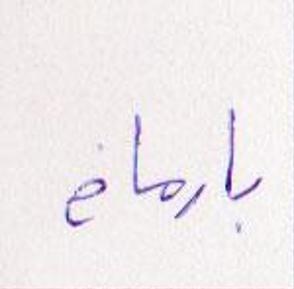 بارماغ